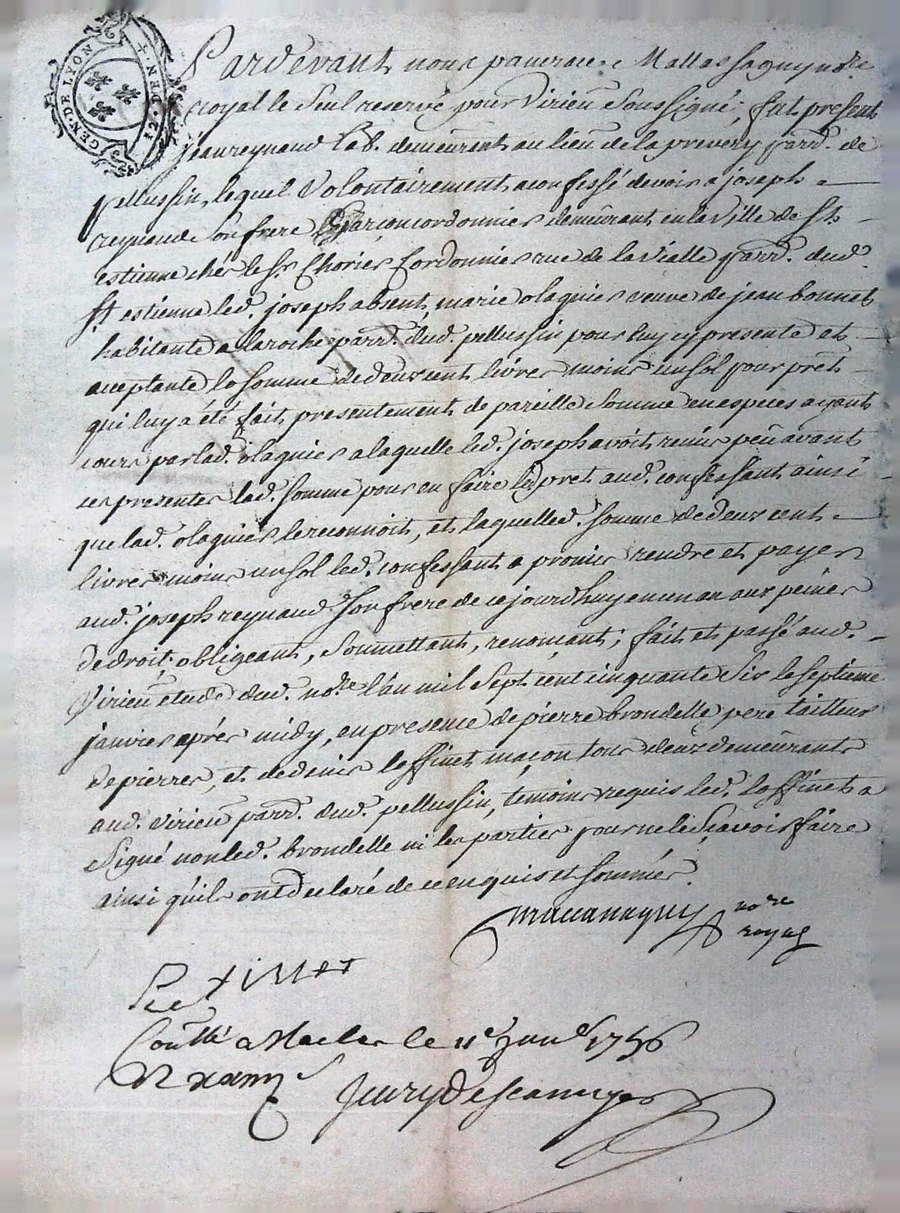 GEN. DE LYON
Pardevant nous pancrace Mattassaguy no.re
royal le Seul reservé pour Virieu Soussigné; fut present
jean reynaud lab.r demeurant au lieu de la prevery parr.e de
pellussin, lequel Volontairement a confessé devoir a joseph
reynaud son frere garçon cordonnier demeurant en la Ville de S.t
estienne chés le S.r Chorier Cordonnier rue de la Vialle parr.e dud.
S.t estienne led. joseph absent, marie olagnier veuve de jean bonnet
habitante a laroche parr.e dud. pellussin pour luy cy presente et
acceptante la somme de deux cent livres moins un sol pour prêt
qui luy a été fait presentement de pareille somme en especes ayant
cours par lad. olagnier a laquelle led. joseph avoit remis peu avant
ces presentes lad. somme pour en faire le pret aud. confessant ainsi
que lad. olagnier le reconnoit, et laquelle d. somme de deux cent
livres moins un sol led. confessant a promis rendre et payer
aud. joseph reynaud son frere de ce jourdhuy en un an aux peines
de droit; obligeant, Soumettant, renonçant; fait et passé aud.
Virieu étude dud. no.re l'an mil Sept cent cinquante Six le Septieme
janvier après midy, en presence de pierre brondelle pere tailleur
de pierres, et de denis loffinet maçon tous deux demeurants
aud. Virieu parr.e dud. pellussin, temoins requis led. loffinet a
Signé non led. brondelle ni les parties pour ne le Sçavoir faire
ainsi qu'ils ont declaré de ce enquis et sommés.
no.re
royal
Con.llé a Maclas le 11e janv. 1756